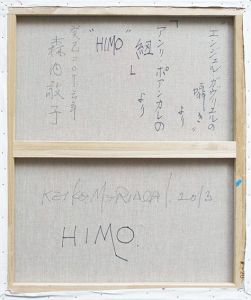 エンジェル ガブリエルの
囁き
より
アンリ ポアンカレの
より
「紐」
"HIMO"
癸巳 二〇一三年
森内敬子
KEIKO MORIUCHI 2013
HIMO.